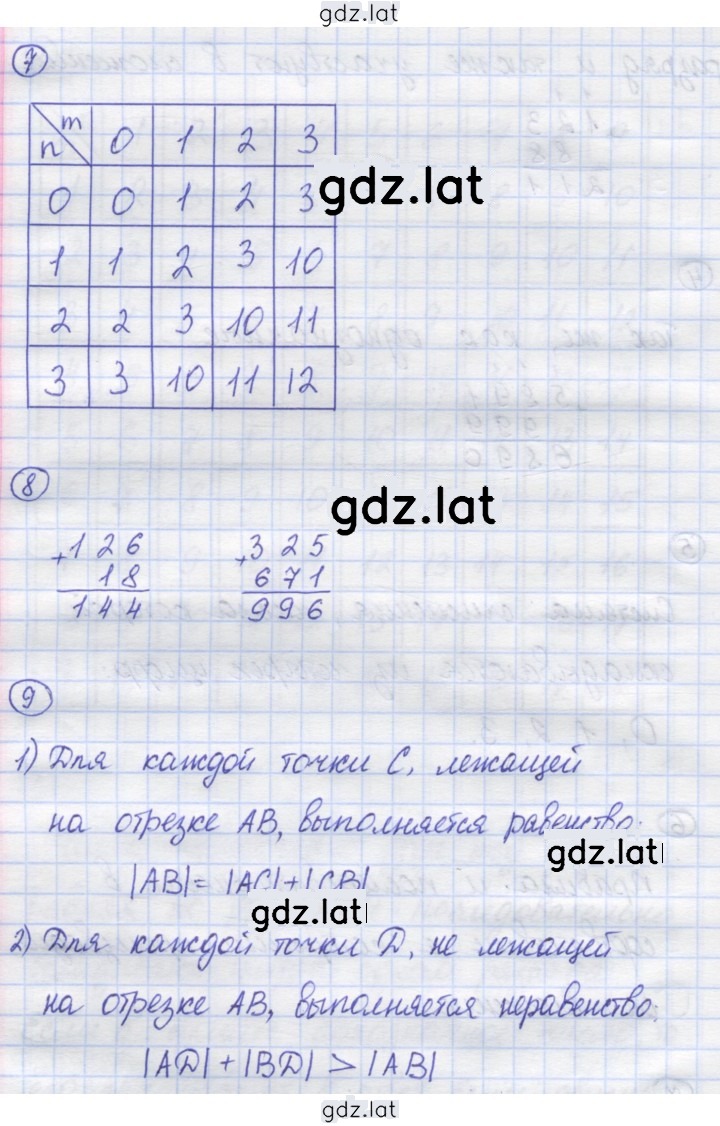 gdz.lat
7
m
n 0 1 2 3
0 0 1 2 3
gdz.lat
1 1 2 3 10
2 2 3 10 11
3 3 10 11 12
8
gdz.lat
+126
18
144
+325
671
996
9
1) Для каждой точки C, лежащей
на отрезке AB, выполняется равенство:
gdz.lat
|AB|= |AC|+|CB|
gdz.lat
2) Для каждой точки D, не лежащей
на отрезке AB, выполняется неравенство:
|AD|+|BD|>|AB|
gdz.lat